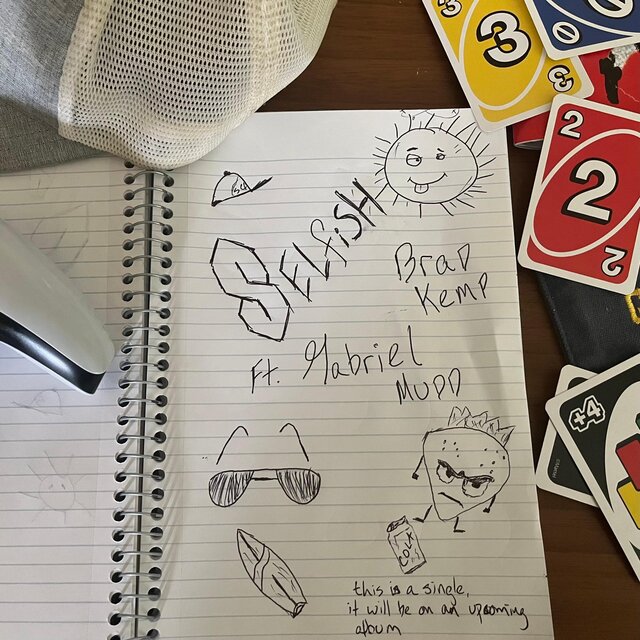 SELfiSH
Brad
Kemp
Ft. Gabriel
Mudd
COCK
this is a single,
it will be on an upcoming
album
3
3
3
0
2
2
2
+4